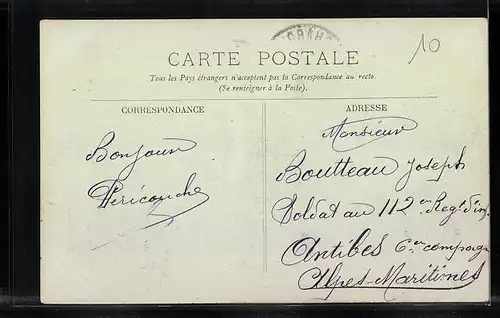 10
CARTE POSTALE
Tous les Pays étrangers n'acceptent pas la Correspondance au recto
(Se renseigner à la Poste).
CORRESPONDANCE
ADRESSE
Bonjour
Monsieur
Boutteau Joseph
Soldat au 112 en Regt d'inf
Antibes 6 en compagn
Alpes-Maritimes